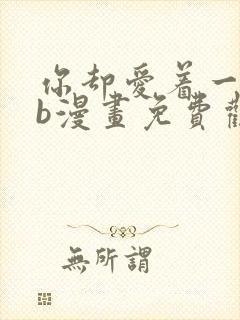 你却愛着一
b漫畫免費
無所謂